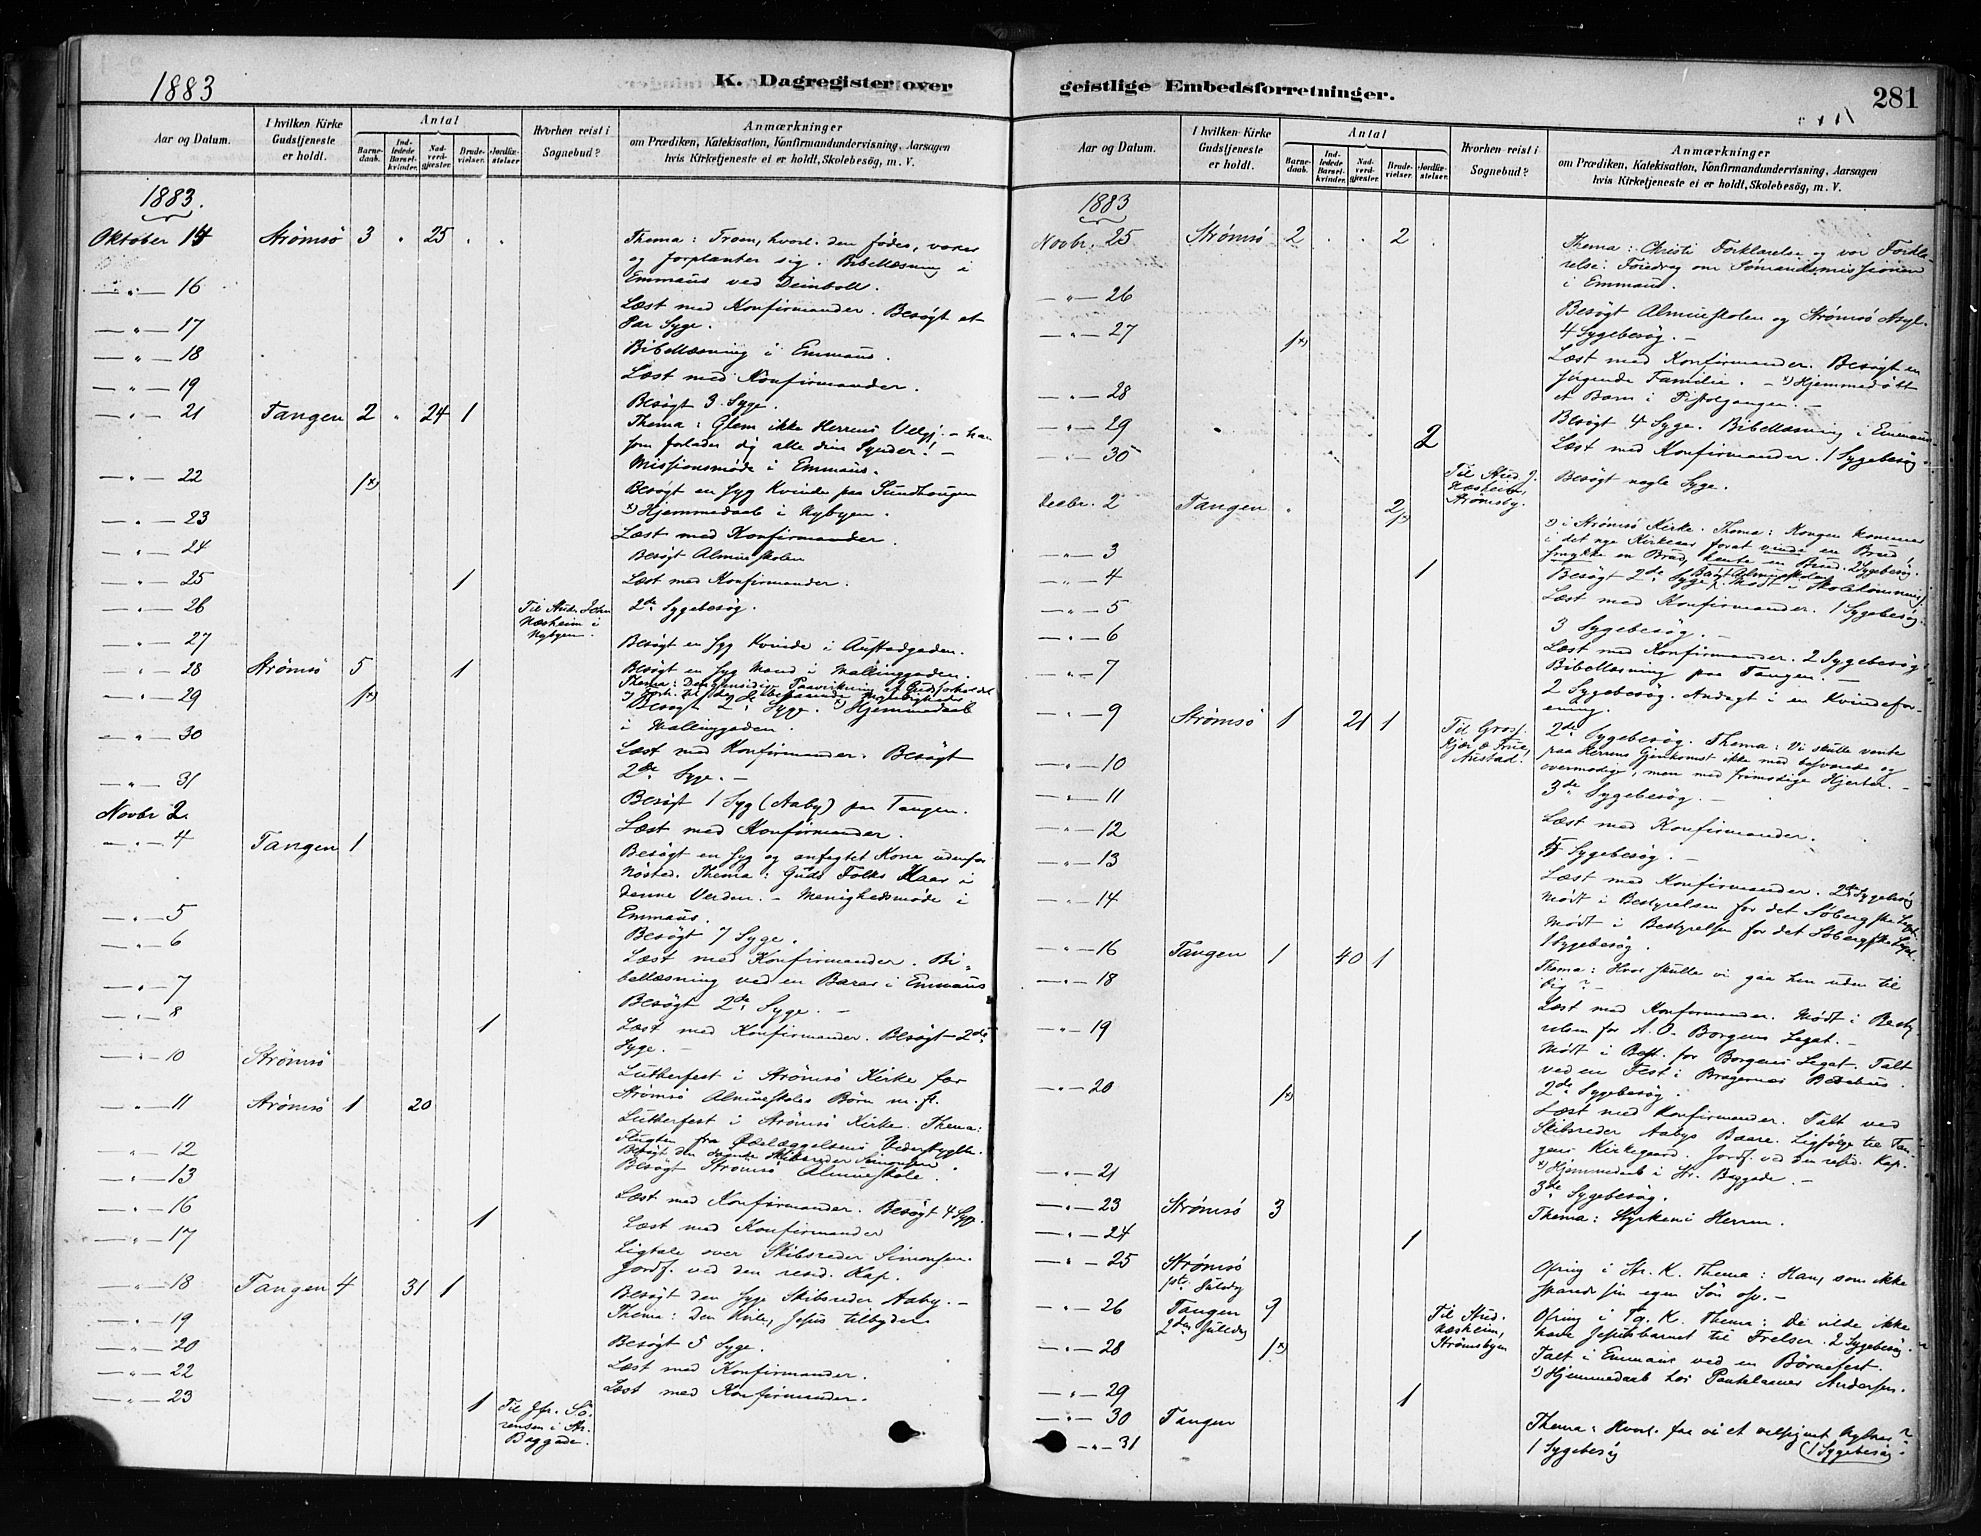 1883
K. Dagregister over
Aar og Datum.
I hvilken Kirke Gudstjeneste er holdt.
Antal
Barne-daab.
Ind-ledede Barsel-kvinder.
Nad-verd-gjester.
Brude-vielser.
Jordfæ-stelser
Hvorhen reist i Sognebud?
Anmærkninger
om Prædiken, Katekisation, Konfirmandundervisning, Aarsagen
hvis Kirketjeneste ei er holdt, Skolebesøg, m. V.
1883.
Oktober 14 Strømsø 3 " 25 " "
Thema: Troen, hvorl. den fødes, voxer
og forplanter sig. Bibellæsning i
Emmaus ved Deinboll.
— " — 16
Læst med Konfirmander. Besøgt et
Par Syge.
— " — 17
Bibellæsning i Emmaus.
— " — 18
Læst med Konfirmander.
— " — 19
Besøgt 3 Syge.
— " — 21 Tangen 2 " 24 1
Thema: Glem ikke Herrens Velgj. – han
som forlader dig alle dine Synder! –
Missionsmøde i Emmaus.
— " — 22 1x)
Besøgt en syg Kvinde paa Sundhaugen
x) Hjemmedaab i Nybyen.
— " — 23
Læst med Konfirmander.
— " — 24
Besøgt Almueskolen
— " — 25 1
Læst med Konfirmander.
— " — 26 Til Stud. John
Næsheim i
Nybyen.
2de Sygebesøg.
— " — 27
Besøgt en syg Kvinde i Austadgaden.
— " — 28 Strømsø 5 1
Besøgt en syg Mand i Mallinggaden.
Thema: Den gjensidige Paavirkning af
— " — 29 1x)
Besøgt 2de Syge. x) Hjemmedaab
i Mallinggaden.
— " — 30
Læst med Konfirmander. Besøgt
2de Syge. –
— " — 31
Besøgt 1 Syg (Aaby) paa Tangen.
Novbr 2.
Læst med Konfirmander.
— " — 4 Tangen 1
Besøgt en syg og anfegtet Kone udenfor
Nøsted. Thema: Guds Folks Kaar i
denne Verden. – Menighedsmøde i
Emmaus.
— " — 5
Besøgt 7 Syge.
— " — 6
Læst med Konfirmander. Bi-
bellæsning ved en Baare i Emmaus
— " — 7
Besøgt 2de Syge. –
— " — 8 1
Læst med Konfirmander. Besøgt 2de
Syge. –
— " — 10 Strømsø
Lutherfest i Strømsø Kirke for
Strømsø Almueskoles Børn m. fl.
— " — 11 Strømsø 1 20
Lutherfest i Strømsø Kirke. Thema:
Flugten fra Ødelæggelsens Vederstyggel.
— " — 12
Besøgt den syge Skibsreder Simonsen.
— " — 13
Besøgt Strømsø Almueskole.
— " — 16
Læst med Konfirmander. Besøgt 4 Syge.
— " — 17 1
Læst med Konfirmander
Ligtale over Skibsreder Simonsen.
Jordf. ved den resid. Kap.
— " — 18 Tangen 4 31 1
Besøgt den syge Skibsreder Aaby. –
Thema: Den Hvile, Jesus tilbyder
— " — 19
— " — 20
Besøgt 5 Syge.
— " — 22
Læst med Konfirmander.
— " — 23 1 Til Jfr. Sö-
rensen i Str.
Baggade.
Læst med Konfirmander.
geistlige Embedsforretninger.
281
Aar og Datum.
I hvilken Kirke Gudstjeneste er holdt.
Antal
Barne-daab.
Ind-ledede Barsel-kvinder.
Nad-verd-gjester.
Brude-vielser.
Jordfæ-stelser
Hvorhen reist i Sognebud?
Anmærkninger
om Prædiken, Katekisation, Konfirmandundervisning, Aarsagen
hvis Kirketjeneste ei er holdt, Skolebesøg, m. V.
1883
Novbr. 25 Strømsø 2 . . 2 .
Thema: Christi Forklarelse og vor Forkla-
relse. Foredrag om Sømandsmissionen
i Emmaus.
— " — 26
Besøgt Almueskolen og Strømsø Asyl.
4 Sygebesøg. –
— " — 27 1x)
Læst med Konfirmander. Besøgt en
sørgende Familie. – x) Hjemmedøbt
et Barn i Pistolgangen. –
— " — 28
Besøgt 4 Syge. Bibellæsning i Emmaus.
— " — 29 2
Læst med Konfirmander. 1 Sygebesøg.
— " — 30 Til Stud. J.
Næsheim,
Strømsby.
Besøgt nogle Syge.
Decbr. 2 Tangen " 2 1x)
x) i Strømsø Kirke. Thema: Kongen kommer
i det nye Kirkeaar forat vinde en Brud,
smykke en Brud, hente en Brud. 2 Sygebesøg.
— " — 3
Besøgt Almueskolen
Besøgt 2de Syge; Mødt i Skolekommis.
— " — 4 1
Læst med Konfirmander. 1 Sygebesøg.
— " — 5
3 Sygebesøg. –
— " — 6
Læst med Konfirmander. 2 Sygebesøg
Bibellæsning paa Tangen. –
— " — 7
2 Sygebesøg. Andagt i en Kvindefor-
ening.
— " — 9 Strømsø 1 21 1 Til Gros.
Kjær & Frue,
Austad.
2de Sygebesøg. Thema: Vi skulle vente
paa Herrens Gjenkomst ikke med besværede og
overmodige, men med frimodige Hjerter. –
— " — 10
3de Sygebesøg. –
— " — 11
Læst med Konfirmander.
— " — 12
5 Sygebesøg. –
— " — 13
Læst med Konfirmander. 2de Sygebesøg
Mødt i Bestyrelsen for det Søbergske Legat.
— " — 14
Mødt i Bestyrelsen for det Søbergske Legat.
1 Sygebesøg.
— " — 16 Tangen 1 40 1
Thema: Hvor skulle vi gaa hen uden til
Dig? –
— " — 18
Læst med Konfirmander. Mødt i Besty-
relsen for A. O. Borgens Legat. –
— " — 19
Mødt i Best. for Borgens Legat. Talt
ved en Fest i Bragernes Bedehus.
— " — 20 1x)
2de Sygebesøg.
Læst med Konfirmander. Talt ved
Skibsreder Aabys Baare. Ligfølge til Tan-
gens Kirkegaard. Jordf. ved den resid. Kap.
x) Hjemmedaab i Str. Baggade. –
— " — 21
3de Sygebesøg.
— " — 23 Strømsø 3
Thema: Styrken i Herren.
— " — 24 1
— " — 25 Strømsø
1ste Juledg
Ofring i Str. K. Thema: Han, som ikke
sparede sin egen Søn osv. –
— " — 26 Tangen 9
2den Juledg
Til Stud.
Næsheim,
Strømsbyen
Ofring i Tg. K. Thema: De vilde ikke
have Jesusbarnet til Frelser. 2 Sygebesøg.
— " — 28 1x)
Talt i Emmaus ved en Børnefest.
x) Hjemmedaab hos Andersen.
— " — 29 1
— " — 30 Tangen
Thema: Hvorl. faa vi et velsignet Nytaar?
— " — 31
1 Sygebesøg (1 Sygebesøg